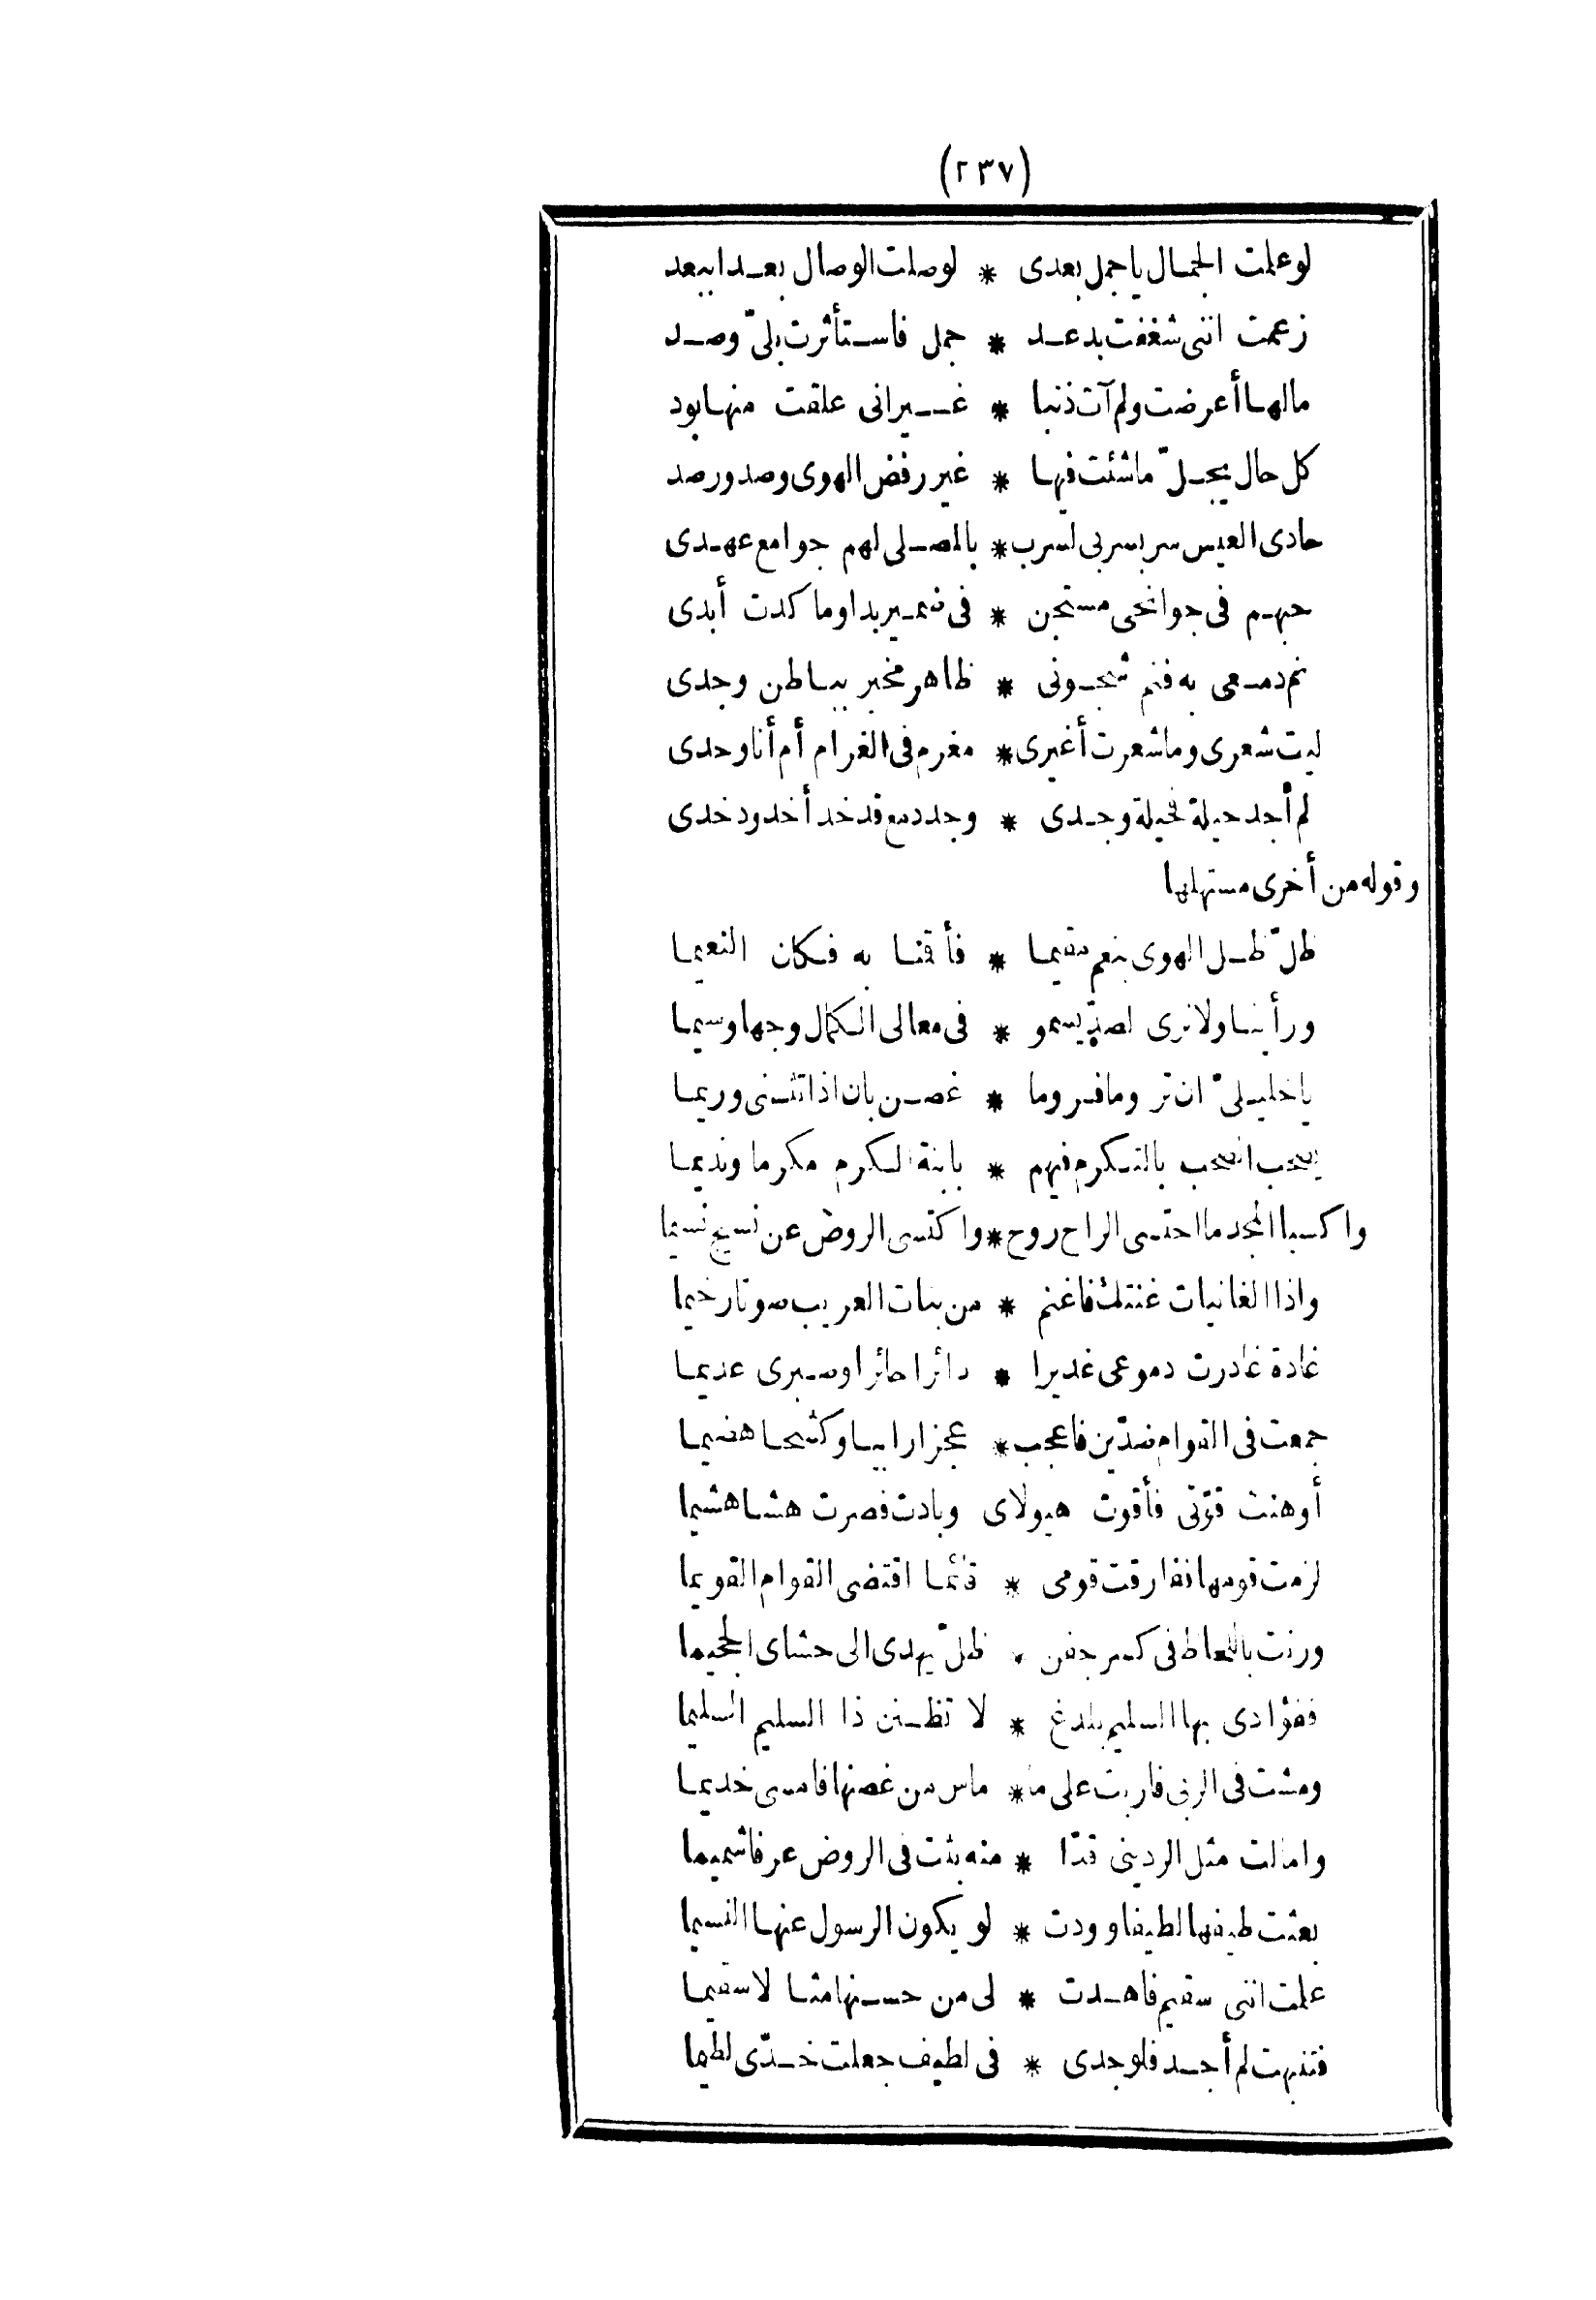 (٢٣٧)
لو علمت الجمال يا جمل بعدى * لوصلت الوصال بعدا ببعد
زعمت اننى شغفت بدعد * جمل فاستأثرت بلىّ وصد
مالها أعرضت ولم آت ذنبا * غير انى علقت منها بود
كل حال يحلّ ما شئت فيها * غير رفض الهوى وصد ورصد
حادى العيس سر بسربى لسرب * بالمصلى لهم جوامع عهدى
حبهم فى جوانحى مستجن * فى ضمير بدا وما كدت أبدى
نم دمعى به فنم شجونى * ظاهر مخبر بباطن وجدى
ليت شعرى وما شعرت أغيرى * مغرم فى الغرام أم أنا وحدى
لم أجد حيلة لحيلة وجدى * وجد دمع قد خد أخدود خدى
وقوله من أخرى مستهلها
ظلّ ظل الهوى بنعم مقيما * فأقمنا به فكان النعيما
ورأينا ولا نرى لصدّ يسمو * فى معالى الكمال وجها وسيما
يا خليلىّ ان تروما فروما * غصن بان اذا تثنى وريما
يصحب الصحب بالتكرم فيهم * بابنة الكرم مكرما ونديما
واكسبا المجد ما احتسى الراح روح * واكتسى الروض عن نسيج نسيما
واذا الغانيات غنتك فاغنم * من بنات العريب صوتا رخيما
غادة غادرت دموعى غديرا * دائرا حائرا وصبرى عديما
جمعت فى القوام ضدّين فاعجب * عجزا رابيا وكشحا هضيما
أوهنت قوّتى فأقوت هيولاى وبادت فصرت هشا هشيما
لزمت قومها ففارقت قومى * قائما اقتضى القوام القويما
ورنت باللحاظ فى كسر جفن * ظلّ يهدى الى حشاى الجحيما
ففؤادى بها السليم بلدغ * لا تظنن ذا السليم السليما
ومشت فى الربى فاربت على ما * ماس من غصنها فامسى خديما
وامالت مثل الردينى قدّا * منه بثت فى الروض عرفا شميما
بعثت طيفها لطيفا وودت * لو يكون الرسول عنها النسيما
علمت اننى سقيم فاهدت * لى من حسنها مثالا سقيما
فتنبهت لم أجد فلوجدى * فى لطيف جعلت خدّى لطيما